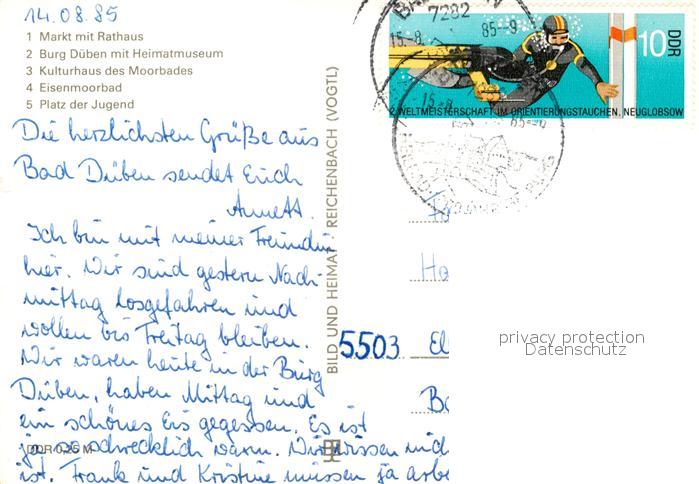 14.08.85
1 Markt mit Rathaus
2 Burg Düben mit Heimatmuseum
3 Kulturhaus des Moorbades
4 Eisenmoorbad
5 Platz der Jugend
Die herzlichsten Grüße aus
Bad Düben sendet Euch
Annett.
Ich bin mit meiner Freundin
hier. Wir sind gestern Nach-
mittag losgefahren und
wollen bis Freitag bleiben.
Wir waren heute in der Burg
Düben, haben Mittag und
ein schönes Eis gegessen. Es ist
ja so schrecklich warm. Wir wissen
ist. Frank und Kristine müssen ja
DDR 0,25 M
BILD UND HEIMAT REICHENBACH (VOGTL)
7282
15.-8. 85-9
10 DDR
2. WELTMEISTERSCHAFT IM ORIENTIERUNGSTAUCHEN, NEUGLOBSOW
5503 El
privacy protection
Datenschutz